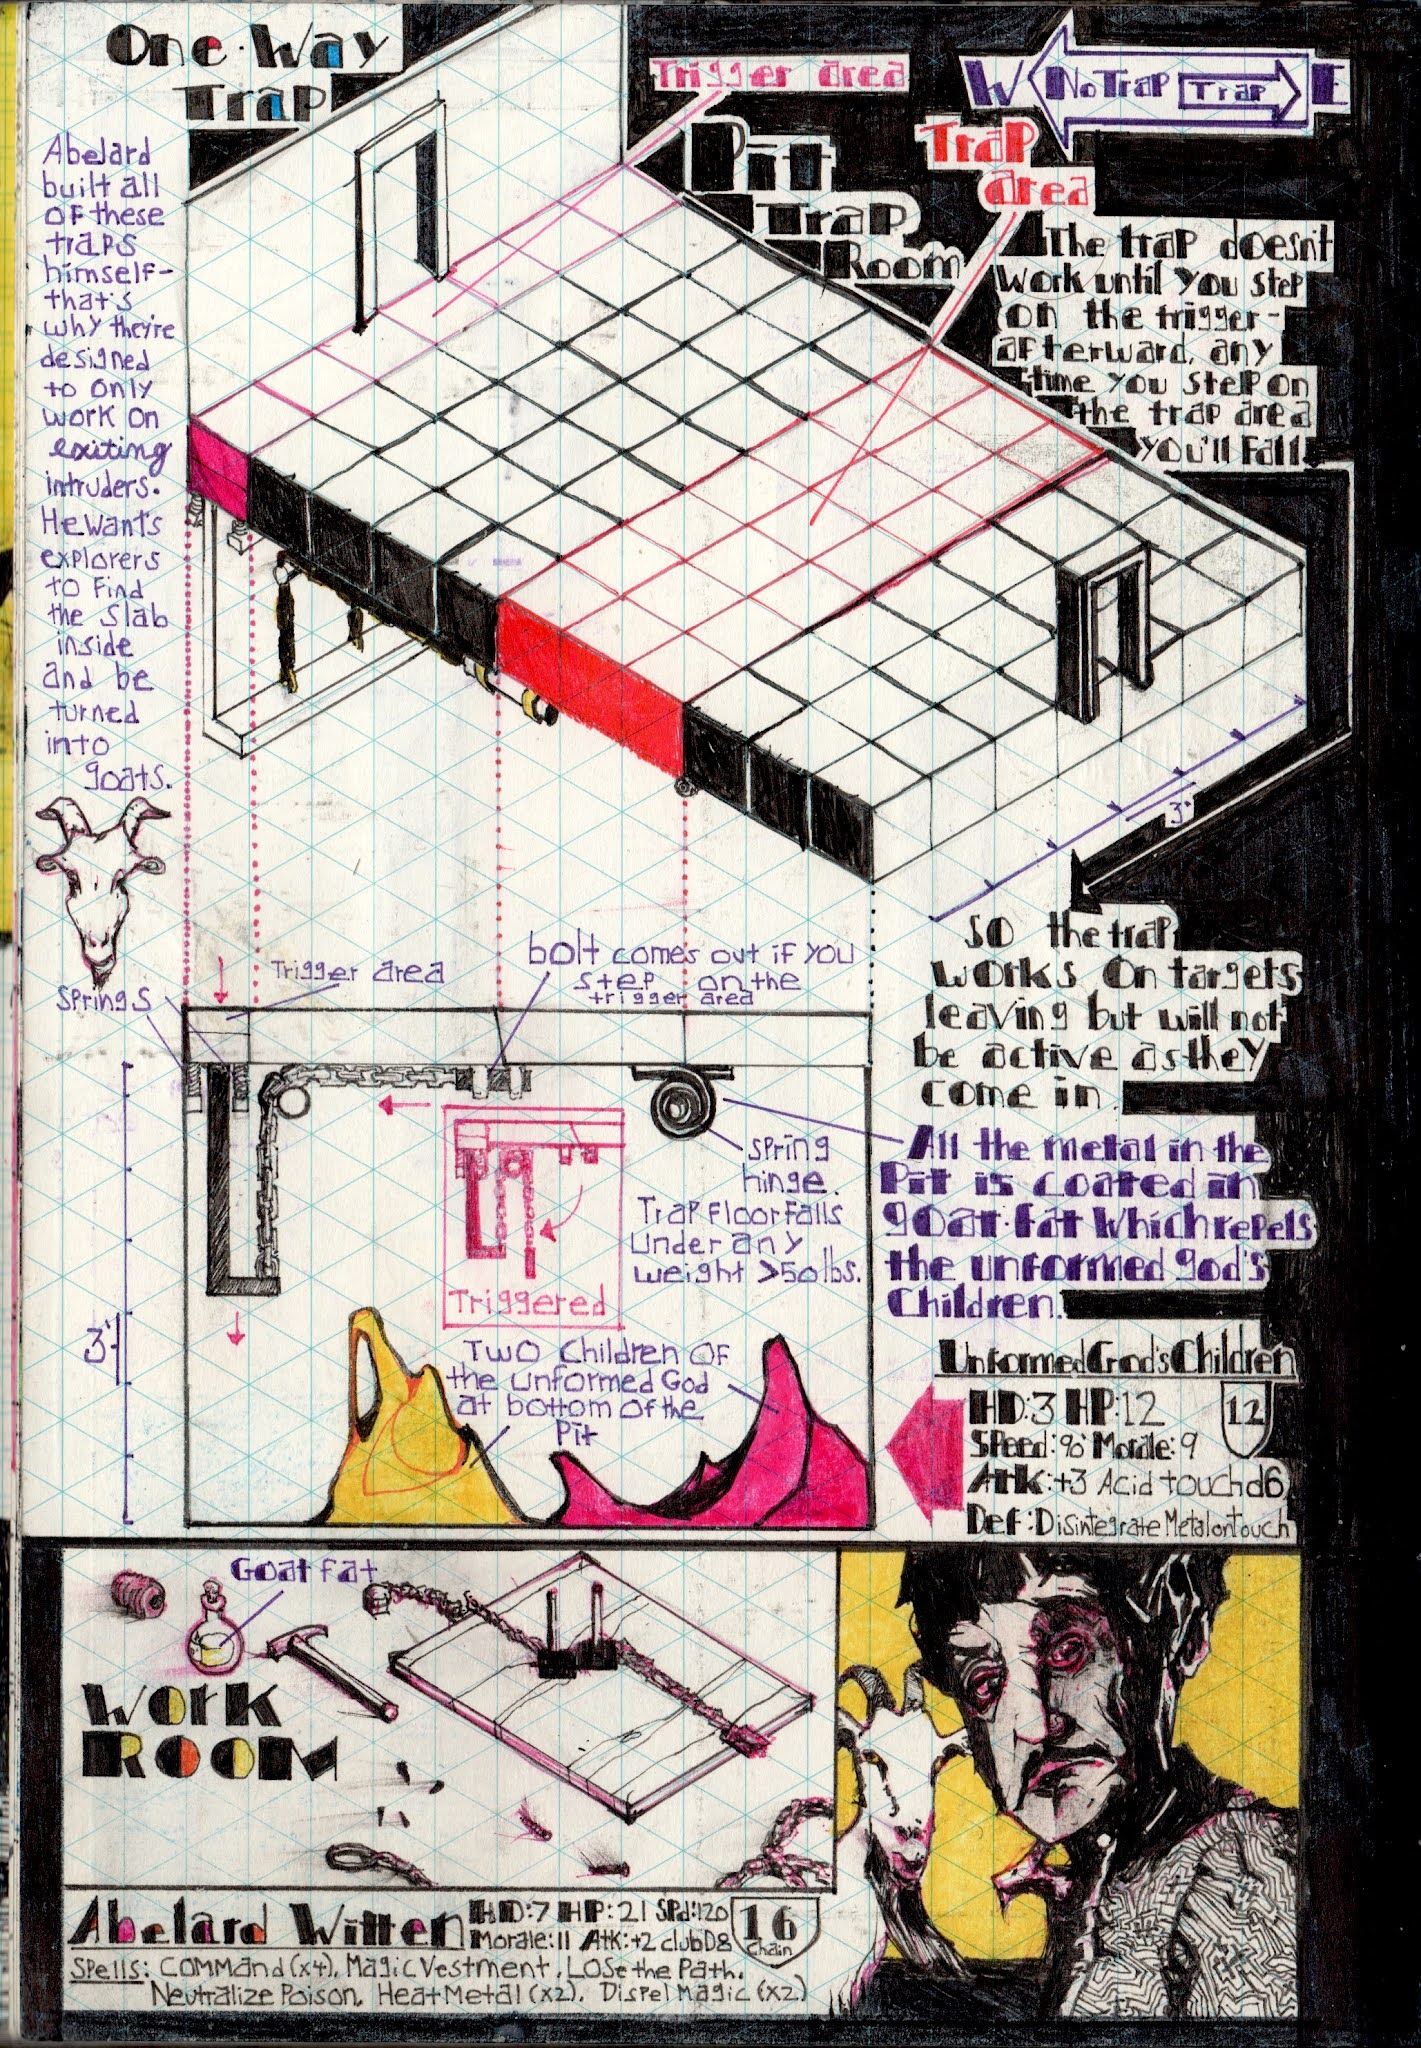 One-Way
Trap
Abelard
built all
of these
traps
himself-
that's
why they're
designed
to only
work on
exiting
intruders.
He wants
explorers
to find
the slab
inside
and be
turned
into
goats.
Trigger area
W No Trap Trap E
Pit
Trap
Room
Trap
area
The trap doesn't
work until you step
on the trigger-
afterward, any
time you step on
the trap area
you'll fall.
3'
So the trap
works on targets
leaving but will not
be active as they
come in.
Springs
Trigger area
bolt comes out if you
step on the
trigger area
Spring
hinge.
Trap floor falls
under any
weight >50lbs.
Triggered
3'
All the metal in the
Pit is coated in
goat-fat which repels
the unformed god's
Children.
Two Children of
the unformed God
at bottom of the
Pit
Unformed God's Children
HD:3 HP:12 12
Speed:90' Morale:9
Atk:+3 Acid touch d6
Def:Disintegrate Metal on touch
Goat fat
Work
Room
Abelard Witten
HD:7 HP:21 Spd:120
Morale:11 Atk:+2 club D8
16
chain
Spells: Command (x4), Magic Vestment, Lose the Path,
Neutralize Poison, Heat Metal (x2), Dispel Magic (x2)